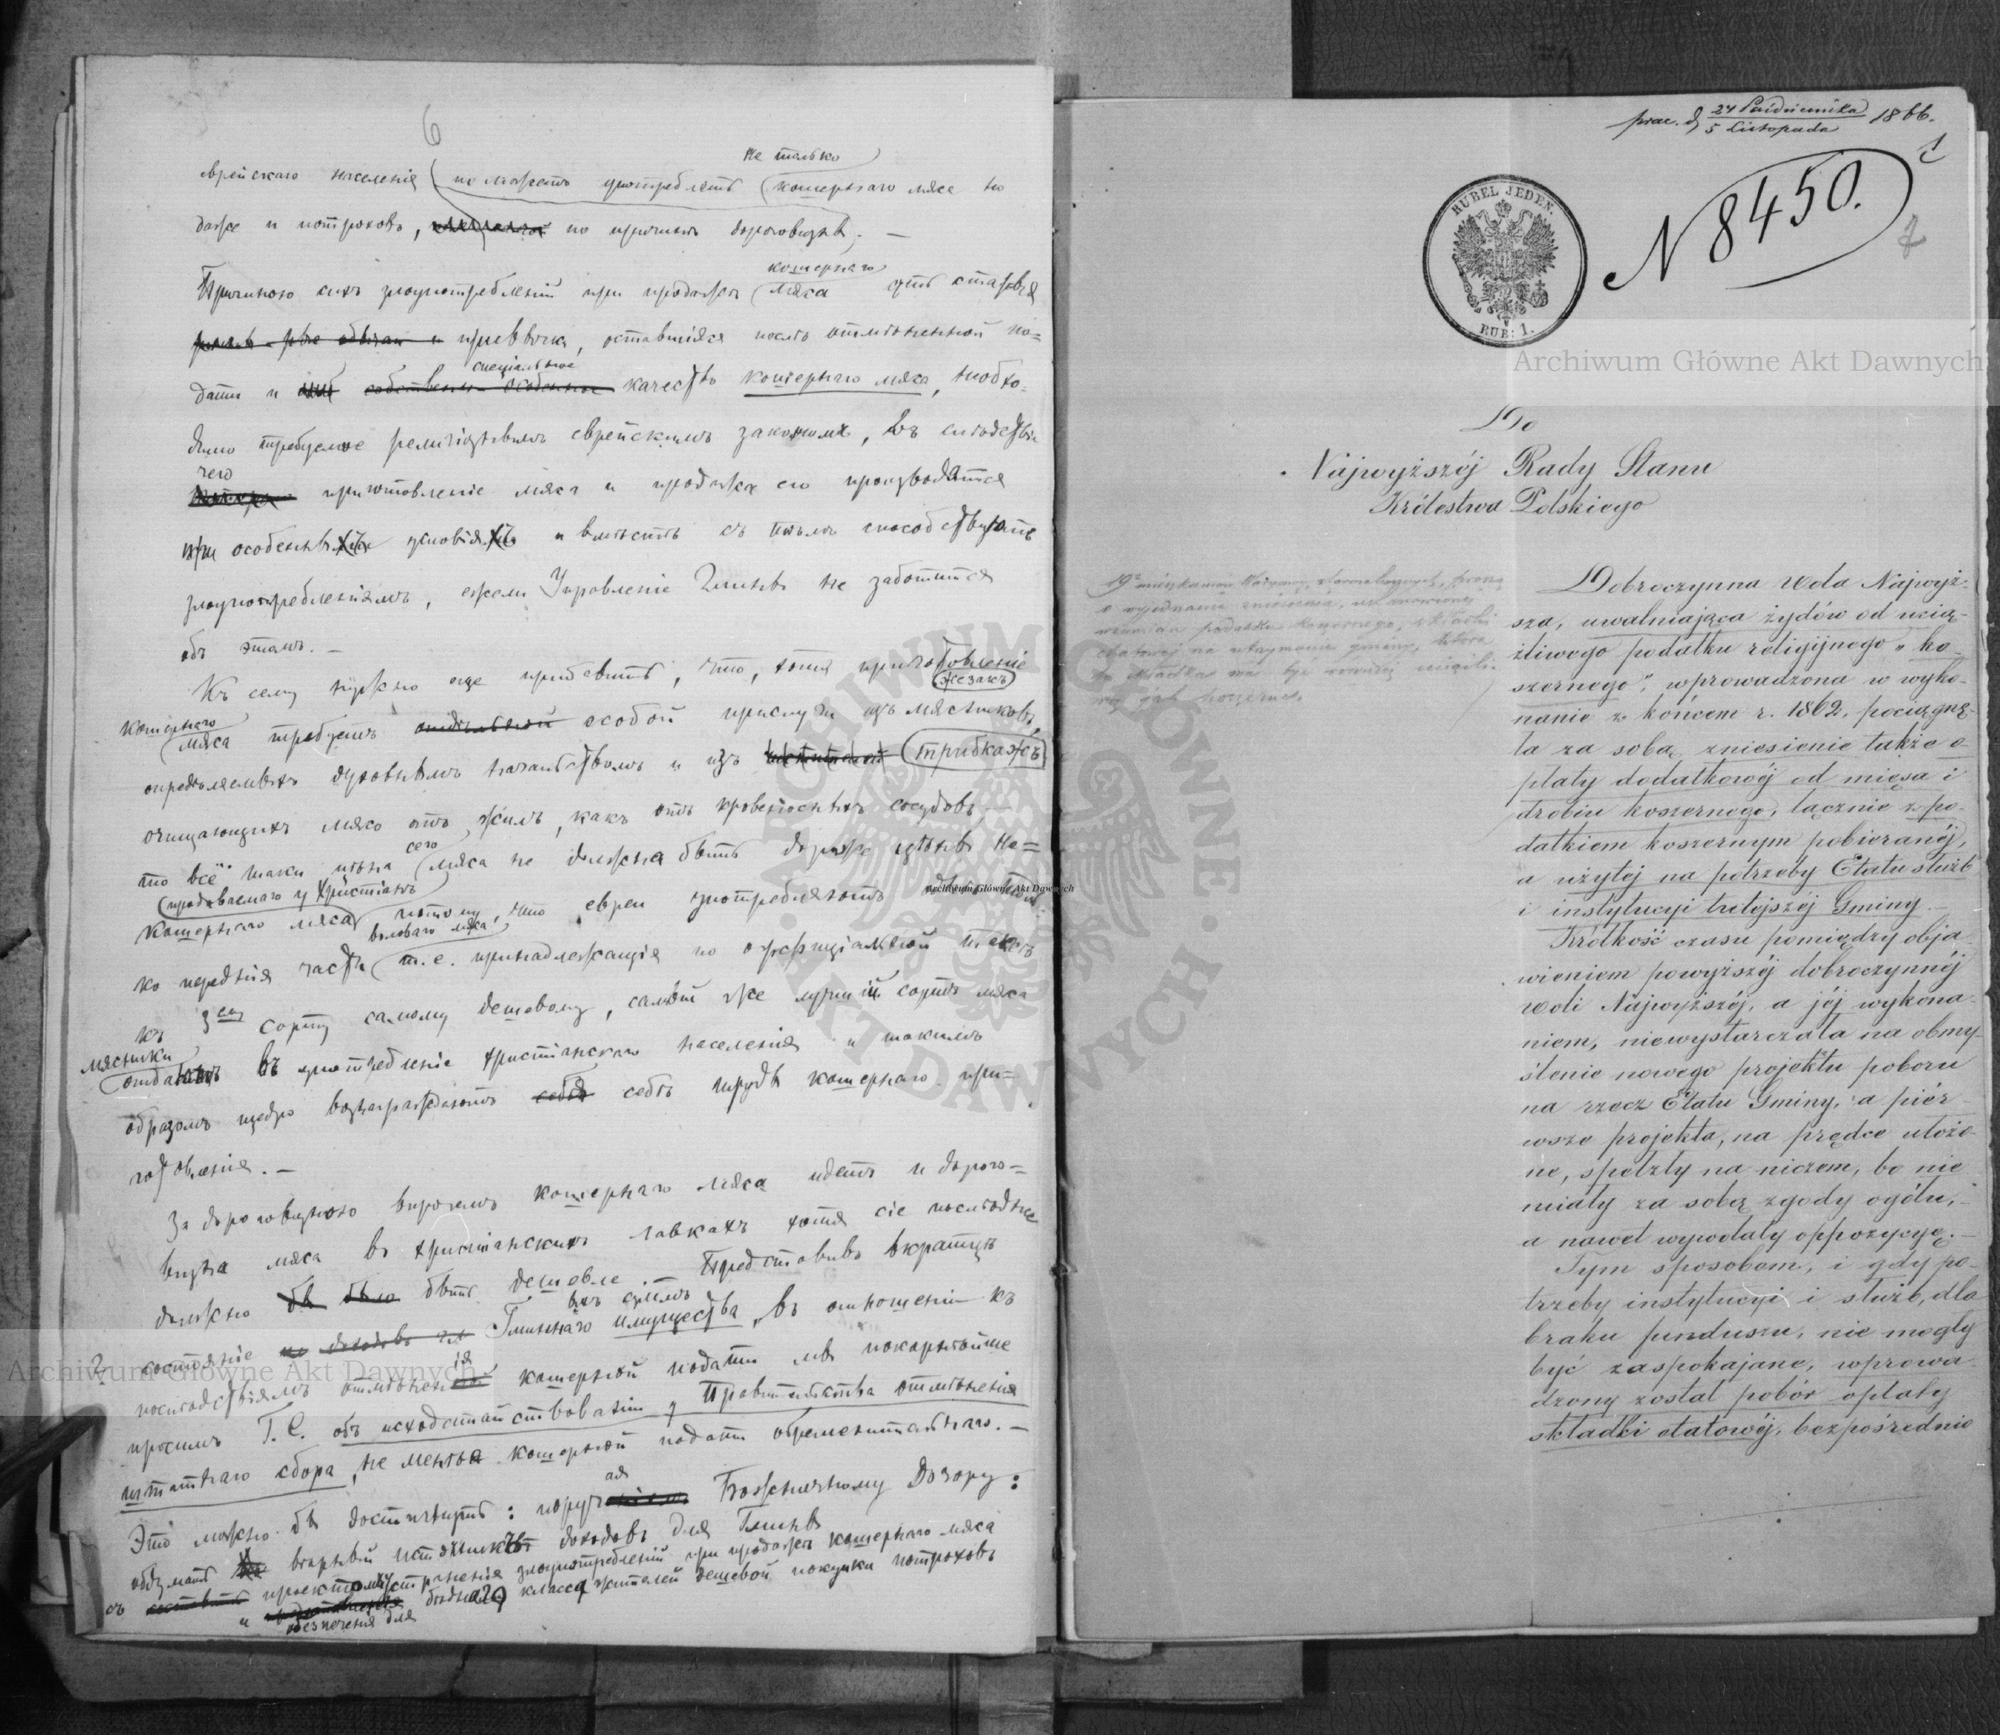 6
не только
еврейскаго населенія не можетъ употреблять кошернаго мяса но
даже и потроховъ, по причинѣ дороговизны. —
кошернаго
Причиною сихъ злоупотребленій при продажѣ мяса суть старыя
привычки, оставшіяся послѣ отмѣненной по=
спеціальное
дати и качество кошернаго мяса, необхо-
димо требуемое религіознымъ еврейскимъ закономъ, въ слѣдствіе
чего
приготовленіе мяса и продажа его производятся
при особенныхъ условіяхъ и вмѣстѣ съ тѣмъ способствуютъ
злоупотребленіямъ, ежели Управленіе Гмины не заботится
объ этомъ. —
Къ сему нужно еще прибавить, что, хотя приготовленіе
кошернаго
мяса требуетъ особой прислуги изъ мясниковъ,
опредѣляемыхъ духовнымъ начальствомъ и изъ
очищающихъ мясо отъ жилъ, какъ отъ кровеносныхъ сосудовъ, —
сего
то всё таки цѣна мяса не должна быть дороже цѣны не=
продаваемаго у христіанъ
кошернаго мяса, потому, что евреи употребляютъ
воловаго мяса
ко переднія части т. е. принадлежащія по оффиціальной таксѣ
къ 3ему сорту самому дешовому, самый же лучшій сортъ мяса
мясники
отдаютъ въ употребленіе христіанскаго населенія и такимъ
образомъ щедро вознаграждаютъ себѣ труды кошернаго при=
готовленія. —
За дороговизною впрочемъ кошернаго мяса идетъ и дорого=
визна мяса въ христіанскихъ лавкахъ хотя сіе послѣднее
должно быть дешовле. — Представивъ вкратцѣ
состояніе Гминнаго имущества, въ отношеніи къ
послѣдствіямъ отмѣненія кошерной подати мы покорнѣйше
просимъ Г. С. объ исходатайствованіи у Правительства отмѣненія
штатнаго сбора, не менѣе кошерной подати обременительнаго. —
Это можно бы достигнуть: поручая Божничному Дозору:
обдумать вѣрный источникъ доходовъ для Гмины
съ проектомъ устраненія злоупотребленій при продажѣ кошернаго мяса
и бѣднаго класса жителей дешевой покупки потроховъ
обезпеченія для
prac. d. 24 Października / 5 Listopada 1866.
1
N 8450.
2
RUBEL JEDEN.
RUB: 1.
Do
Najwyższéj Rady Stanu
Królestwa Polskiego
19 mieszkańców Warszawy, starozakonnych, proszą
o wyjednanie zniesienia,
podatku koszernego, składki
etatowéj na utrzymanie gminy, która
to składka ma być równiéj uciążli-
wą jak koszerne.
Dobroczynna Wola Najwyż-
sza, uwalniająca żydów od ucią-
żliwego podatku religijnego „ko-
szernego”, wprowadzona w wyko-
nanie z końcem r. 1862, pociągnę-
ła za sobą zniesienie także o-
płaty dodatkowéj od mięsa i
drobiu koszernego, łącznie z po-
datkiem koszernym pobieranéj,
a użytéj na potrzeby Etatu służb
i instytucyi tutejszéj Gminy. —
Krótkość czasu pomiędzy obja-
wieniem powyższéj dobroczynnéj
woli Najwyższéj, a jéj wykona-
niem, niewystarczała na obmy-
ślenie nowego projektu poboru
na rzecz Etatu Gminy, a pier-
wsze projekta, na prędce ułożo-
ne, spełzły na niczem, bo nie
miały za sobą zgody ogółu,
a nawet wywołały oppozycyę. —
Tym sposobem, i gdy po-
trzeby instytucyi i służb, dla
braku funduszu, nie mogły
być zaspokajane, wprowa-
dzony został pobór opłaty
składki etatowéj, bezpośrednio
Archiwum Główne Akt Dawnych
Archiwum Główne Akt Dawnych
Archiwum Główne Akt Dawnych
ARCHIWUM GŁÓWNE AKT DAWNYCH